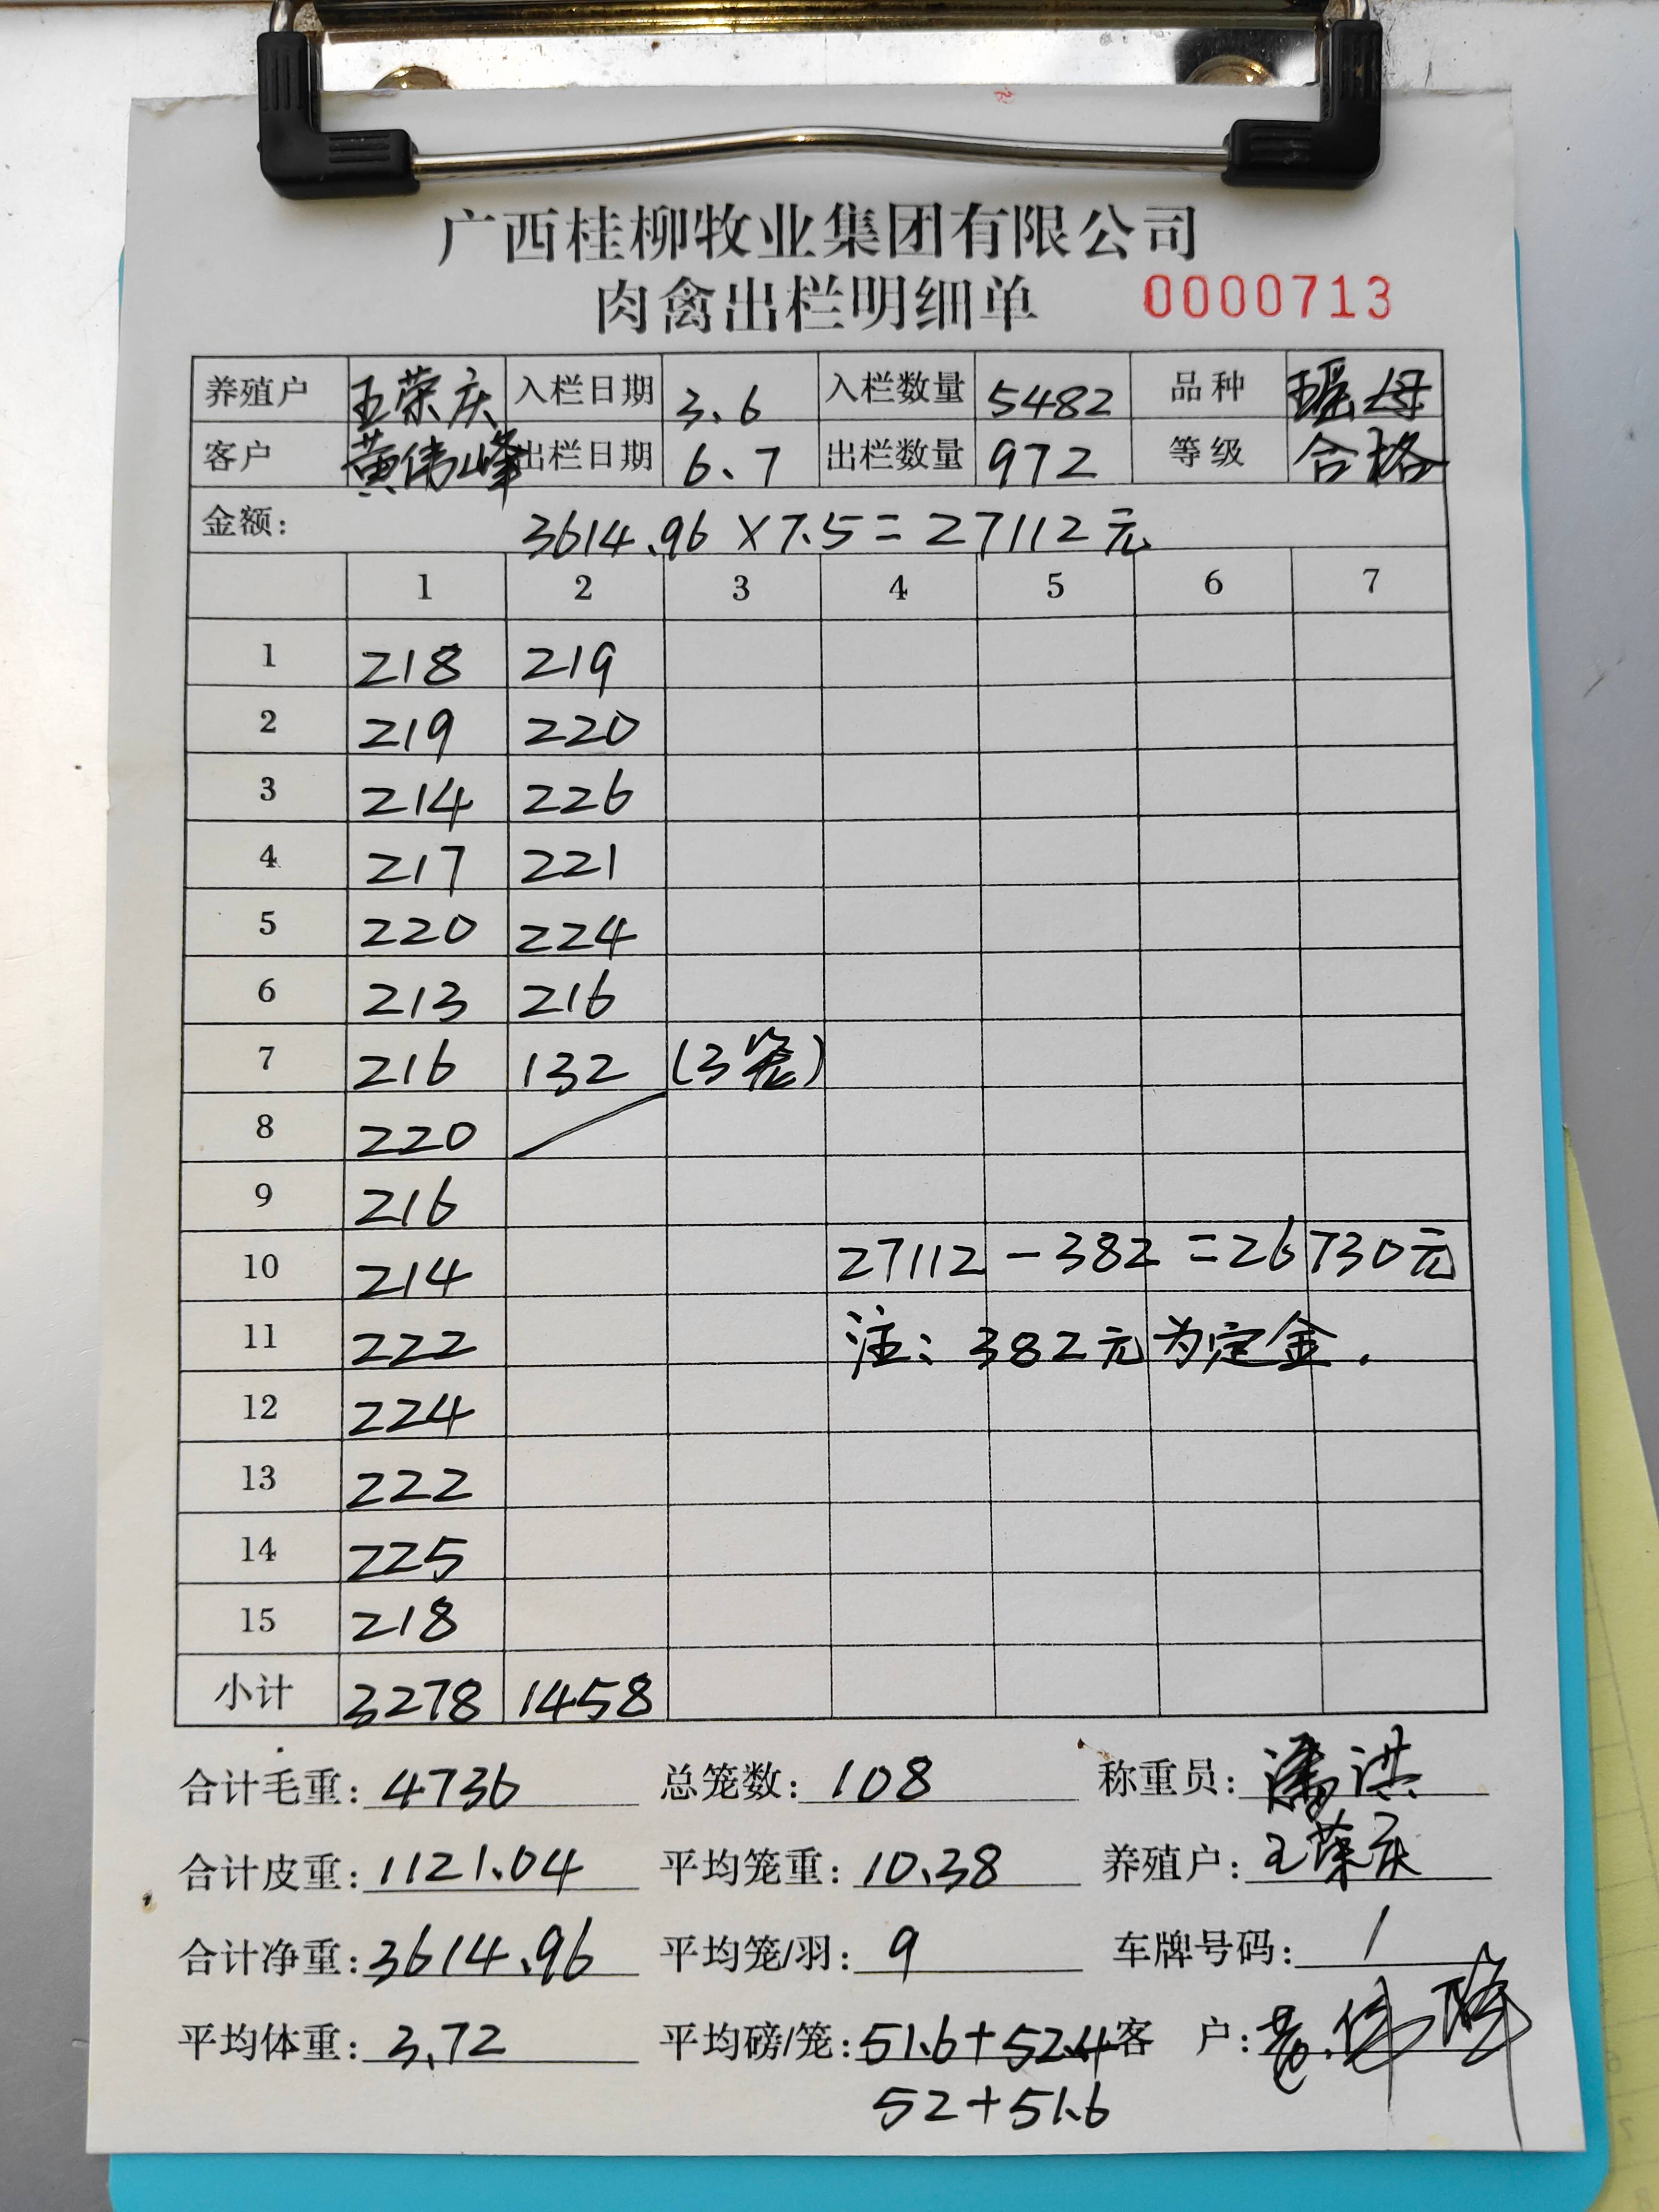 广西桂柳牧业集团有限公司
肉禽出栏明细单 0000713
养殖户 王荣庆 入栏日期 3.6 入栏数量 5482 品种 瑶母
客户 黄伟峰 出栏日期 6.7 出栏数量 972 等级 合格
金额: 3614.96×7.5=27112元
1 2 3 4 5 6 7
1 218 219
2 219 220
3 214 226
4 217 221
5 220 224
6 213 216
7 216 132 (3笼)
8 220
9 216
10 214 27112-382=26730元
11 222 注:382元为定金.
12 224
13 222
14 225
15 218
小计 3278 1458
合计毛重: 4736 总笼数: 108 称重员: 潘洪
合计皮重: 1121.04 平均笼重: 10.38 养殖户: 王荣庆
合计净重: 3614.96 平均笼/羽: 9 车牌号码: 1
平均体重: 3.72 平均磅/笼: 51.6+52.4 客 户: 黄伟峰
52+51.6